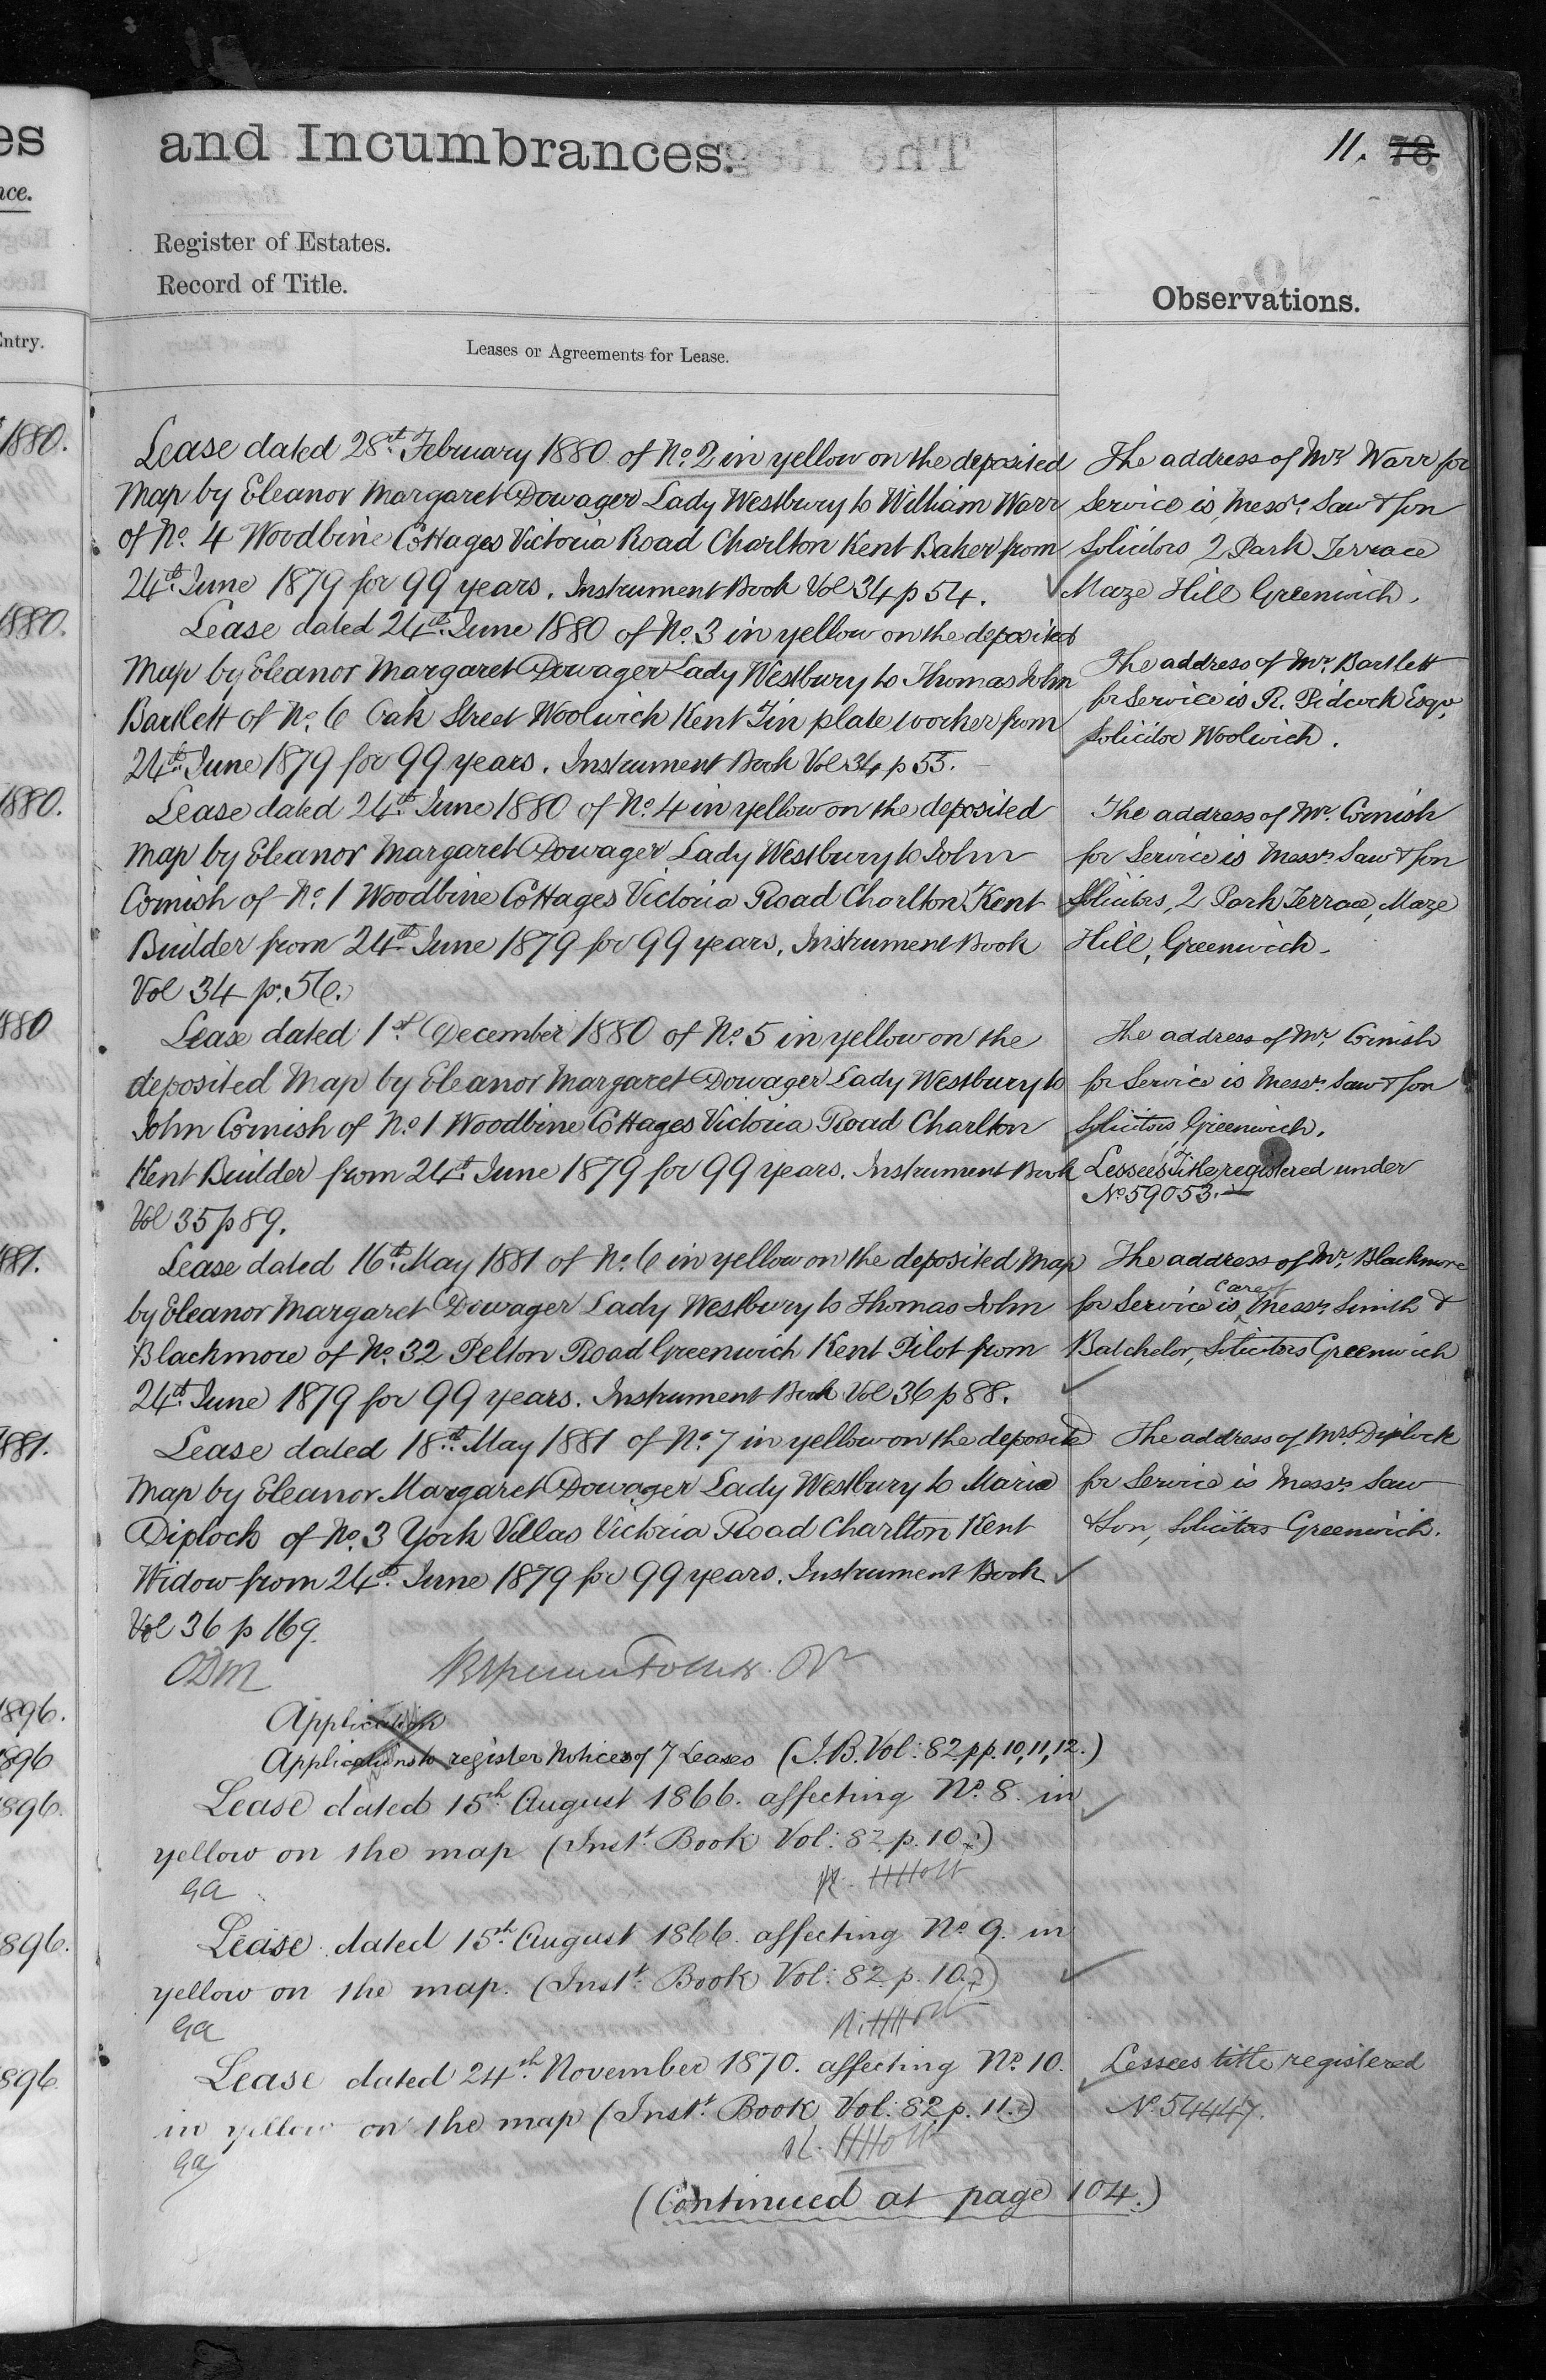 es
and Incumbrances.
11. 78.
nce.
Register of Estates.
Record of Title.
Observations.
Entry.
Leases or Agreements for Lease.
1880.
Lease dated 28th February 1880 of No. 2 in yellow on the deposited
Map by Eleanor Margaret Dowager Lady Westbury to William Warr
of No. 4 Woodbine Cottages Victoria Road Charlton Kent Baker from
24th June 1879 for 99 years. Instrument Book Vol 34 p 54.
The address of Mr. Warr for
Service is Messrs. Saw & Son
Solicitors 2 Park Terrace
Maze Hill Greenwich.
1880.
Lease dated 24th June 1880 of No. 3 in yellow on the deposited
Map by Eleanor Margaret Dowager Lady Westbury to Thomas John
Bartlett of No. 6 Oak Street Woolwich Kent Tin plate worker from
24th June 1879 for 99 years. Instrument Book Vol 34 p 55.
The address of Mr. Bartlett
for Service is R. Pidcock Esqre.
Solicitor Woolwich.
1880.
Lease dated 24th June 1880 of No. 4 in yellow on the deposited
Map by Eleanor Margaret Dowager Lady Westbury to John
Cornish of No. 1 Woodbine Cottages Victoria Road Charlton Kent
Builder from 24th June 1879 for 99 years. Instrument Book
Vol 34 p. 56.
The address of Mr. Cornish
for Service is Messrs. Saw & Son
Solicitors, 2 Park Terrace, Maze
Hill, Greenwich.
1880
Lease dated 1st December 1880 of No. 5 in yellow on the
deposited Map by Eleanor Margaret Dowager Lady Westbury to
John Cornish of No. 1 Woodbine Cottages Victoria Road Charlton
Kent Builder from 24th June 1879 for 99 years. Instrument Book
Vol 35 p 89.
The address of Mr. Cornish
for Service is Messrs. Saw & Son
Solicitors Greenwich.
Lessee's Title registered under
No. 59053.
1881.
Lease dated 16th May 1881 of No. 6 in yellow on the deposited Map
by Eleanor Margaret Dowager Lady Westbury to Thomas John
Blackmore of No. 32 Pelton Road Greenwich Kent Pilot from
24th June 1879 for 99 years. Instrument Book Vol 36 p 88.
The address of Mr. Blackmore
for Service is care of Messrs. Smith &
Batchelor, Solicitors Greenwich
1881.
Lease dated 18th May 1881 of No. 7 in yellow on the deposited
Map by Eleanor Margaret Dowager Lady Westbury to Maria
Diplock of No. 3 York Villas Victoria Road Charlton Kent
Widow from 24th June 1879 for 99 years. Instrument Book
Vol 36 p 169.
The address of Mrs. Diplock
for Service is Messrs. Saw
& Son, Solicitors Greenwich.
1896.
Application
1896
Applications to register Notices of 7 Leases (I.B. Vol: 82 pp. 10, 11, 12.)
1896.
Lease dated 15th August 1866. affecting No. 8. in
yellow on the map (Instt. Book Vol: 82 p. 10.)
ga
HHolt
1896.
Lease dated 15th August 1866. affecting No. 9. in
yellow on the map. (Instt. Book Vol: 82 p. 10.)
ga
HHolt
1896
Lease dated 24th November 1870. affecting No. 10.
in yellow on the map (Instt. Book Vol: 82 p. 11.)
ga
HHolt
Lessees title registered
No. 54447.
(Continued at page 104.)